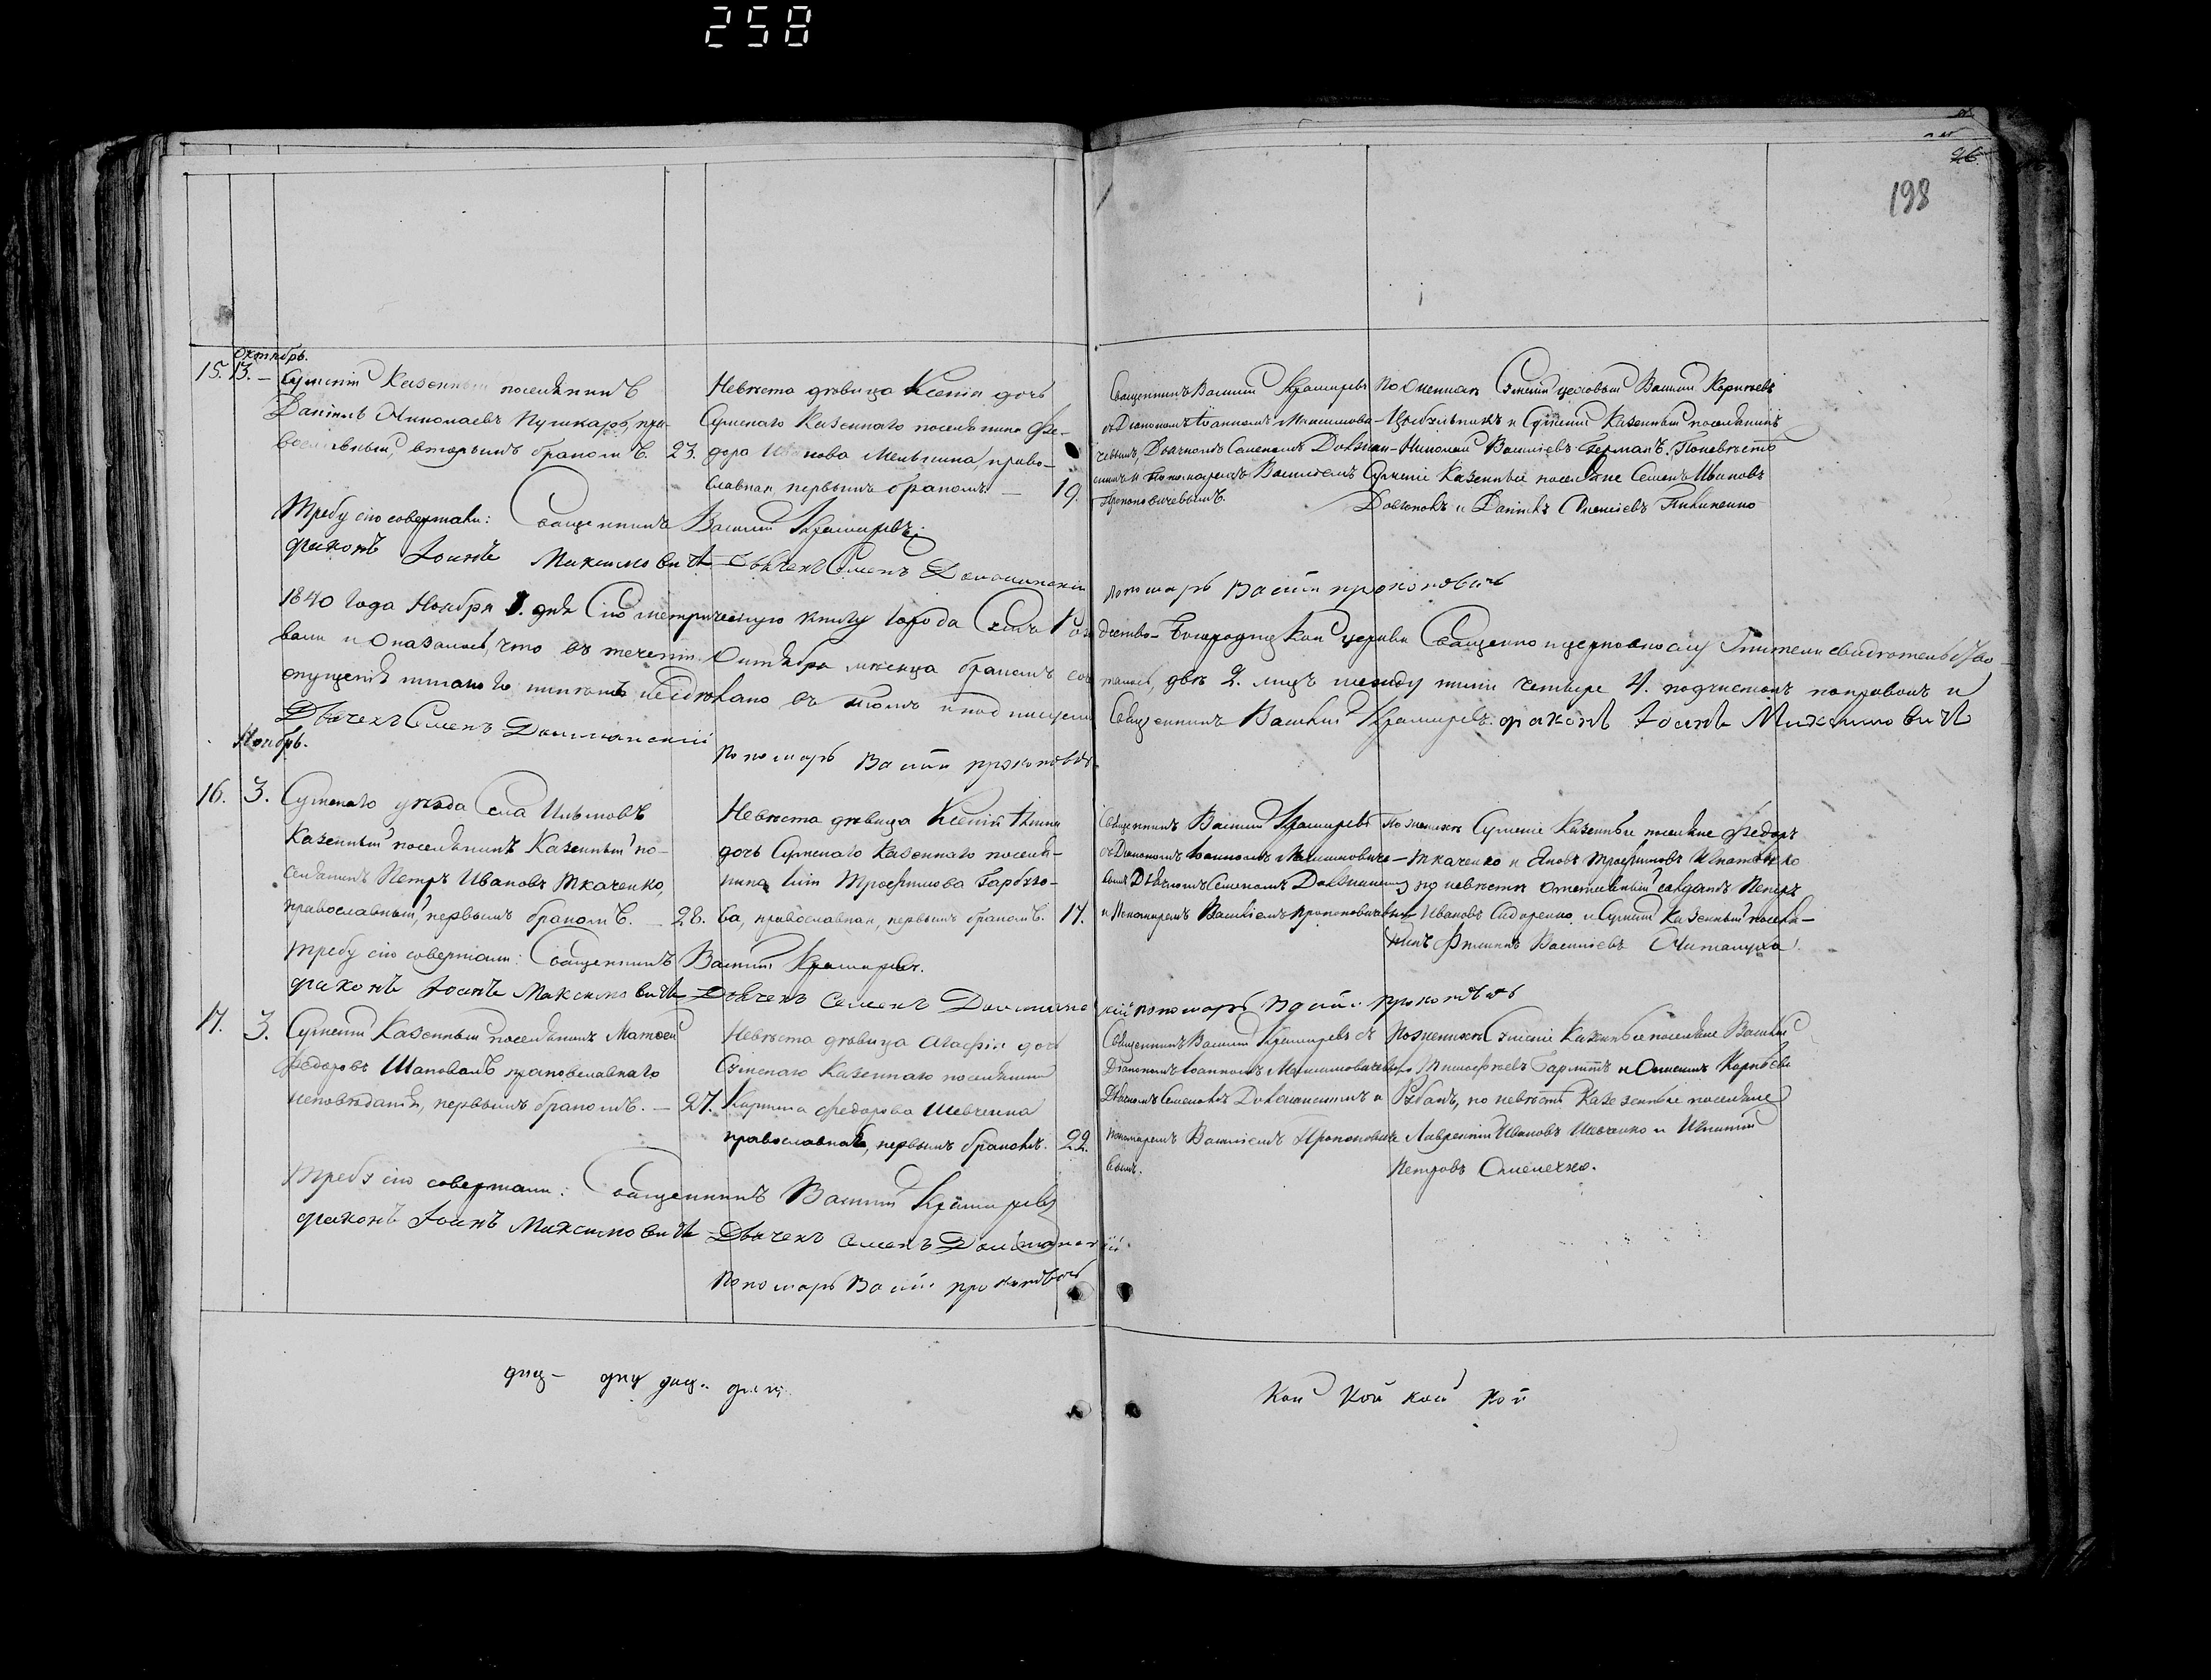 258
26
198
Октябрь.
15. 13. — Сумскій Казенный поселянинъ
Даніилъ Николаевъ Пушкарь, пра-
вославный, вторымъ бракомъ. 23.
Невѣста дѣвица Ксенія дочь
Сумскаго Казеннаго поселянина Фе-
дора Иванова Мельника, право-
славная первымъ бракомъ. — 19.
Священникъ Василій Крамаревъ
съ Діакономъ Іоанномъ Максимови-
чевымъ, Дьячкомъ Семеномъ Долъман-
скимъ и Пономаремъ Василіемъ
Прокоповичевымъ.
По Женихѣ Сумскій цеховый Василій Корнѣевъ
и Сумскій Казенный поселянинъ
Николай Василіевъ Германъ. По невѣстѣ
Сумскіе Казенные поселяне Семенъ Ивановъ
и Даніилъ Алексіевъ
Требу сію совершали: Священникъ Василій Крамаревъ.
Діаконъ Іоаннъ Максимовичъ Дьячекъ Семенъ Долманскій
пономарь Василій прокоповичь
1840 Года Ноября 1. дня Сію метрическую книгу города Сумъ Рождество-Богородицкой церкви Священно и церковнослужители свидетельство-
вали и Оказалось, что въ теченіи Октября мѣсяца бракомъ сочетались, двѣ 2. лицъ между ними четыре 4. подчистокъ поправокъ и
опущенія никакого никѣмъ несдѣлано въ томъ и подписуемъ Священникъ Василій Крамаревъ. Діаконъ Іоаннъ Максимовичъ
Дьячекъ Семенъ Долманскій
Пономарь Василій прокоповичь
Ноябрь.
16. 3. Сумскаго уѣзда Села
Казенный поселянинъ Казенный по-
селянинъ Петръ Ивановъ Ткаченко,
православный, первымъ бракомъ. — 28.
Невѣста дѣвица Ксенія
дочь Сумскаго Казеннаго поселя-
нина Трофимова Гарбузо-
ва, православная, первымъ бракомъ. 17.
Священникъ Василій Крамаревъ
съ Діакономъ Іоанномъ Максимовиче-
вымъ Дьячкомъ Семеномъ Долманскимъ
и Пономаремъ Василіемъ Прокоповичевымъ
По женихѣ Сумскіе Казенные поселяне Федоръ
Ткаченко и Яковъ Трофимовъ Игнатенко
по невѣстѣ Отставный солдатъ Петръ
Ивановъ Сидоренко и Сумскій Казенный поселя-
нинъ Филиппъ Василіевъ
Требу сію совершали: Священникъ Василій Крамаревъ.
Діаконъ Іоаннъ Максимовичъ Дьячекъ Семенъ Долманскій пономарь Василій прокоповичь
17. 3. Сумскій Казенный поселянинъ Матвей
Федоровъ Шаповалъ православнаго
исповѣданія, первымъ бракомъ. — 27.
Невѣста дѣвица Агафія дочь
Сумскаго Казеннаго поселянина
Кирилла Федорова Шевченка
православная, первымъ бракомъ. 22.
Священникъ Василій Крамаревъ съ
Діакономъ Іоанномъ Максимовичевымъ
Дьячкомъ Семеномъ Долманскимъ и
пономаремъ Василіемъ Прокопович-
вымъ.
По женихѣ Сумскіе Казенные поселяне Василій
Тимофѣевъ и Корнѣевъ
Рубанъ, по невѣстѣ Казенные поселяне
Лаврентій Ивановъ Шевченко и Игнатій
Петровъ Омелечко.
Требу сію совершали: Священникъ Василій Крамаревъ
Діаконъ Іоаннъ Максимовичъ Дьячекъ Семенъ Долманскій.
Пономарь Василій прокоповичь
диц- диц диц. диц.
кой кой кой кой